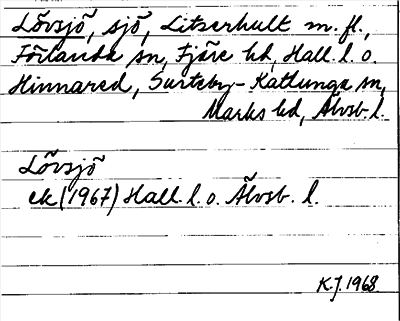 Lövsjö, sjö, Litserhult m. fl.,
Förlanda sn, Fjäre hd, Hall. l. o.
Hinnared, Surteby-Kattunga sn,
Marks hd, Älvsb. l.
Lövsjö
ek (1967) Hall. l. o. Älvsb. l.
K.J. 1968